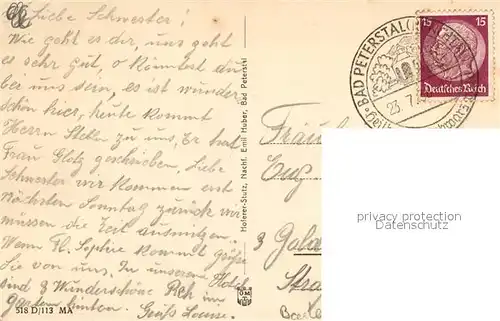 Liebe Schwester!
Wie geht es dir, uns geht
es sehr gut, o könntest du
bei uns sein, es ist wunder
schön hier, heute kommt
Herrn zu uns, Er hat
Frau Glotz geschrieben, Liebe
Schwester wir kommen erst
nächsten Sonntag zurück wir
müssen die Zeit ausnützen.
Wenn Frl. Sophie kommt grüße
Sie von uns. In unserem Hotel
sind 3 Wunderschöne Reh im
Garten hinten. Gruß Louise.
518 D/113 MA
Hoferer-Stutz, Nachf. Emil Huber, Bad Peterstal
BAD PETERSTAL
23. 7.
15 15
Deutsches Reich
Fräu
Eug
3
Stra
privacy protection
Datenschutz